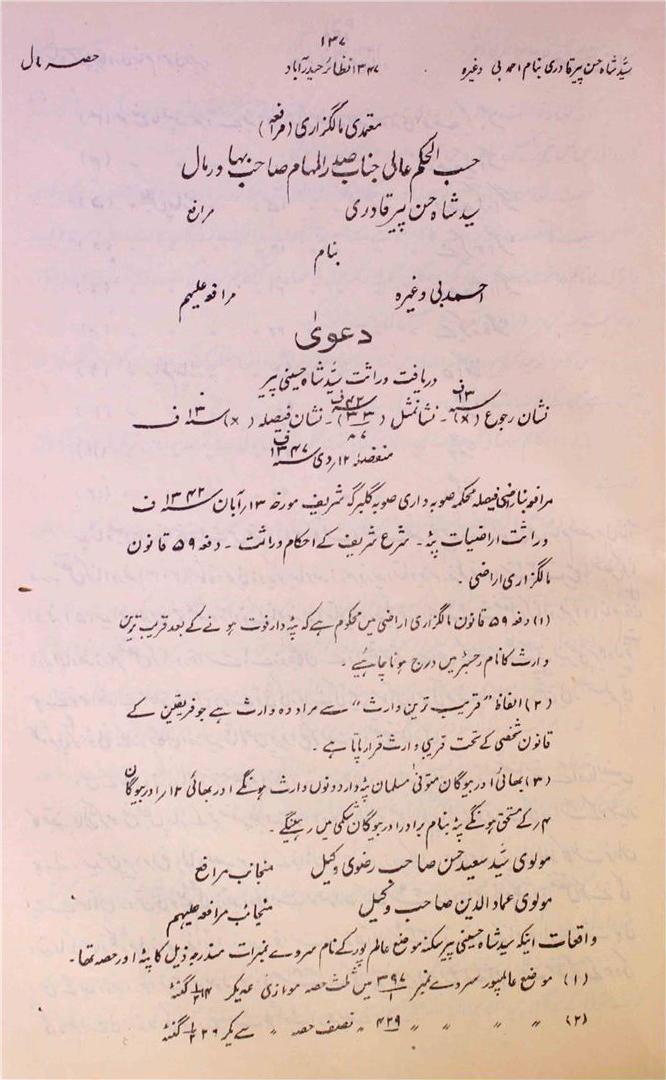 ۱۳۷
سید شاہ حسن پیر قادری بنام احمد بی وغیرہ ۱۳۴۷ نظائر حیدرآباد حصہ مال
معتمدی مالگزاری (مرافعہ)
حسب الحکم عالی جناب صدر المہام صاحب بہادر مال
سید شاہ حسن پیر قادری مرافع
بنام
احمد بی وغیرہ مرافعہ علیہم
دعویٰ
دریافت وراثت سید شاہ حسینی پیر
نشان رجوع (×) ۱۳ ف۔ نشان مثل (۳۳) ۴۲ ف۔ نشان فیصلہ (×) ۱۳ ف
منفصلہ ۱۲ دی ۱۳۴۷ ف
مرافعہ بناراضی فیصلہ محکمہ صوبہ داری صوبہ گلبرگہ شریف مورخہ ۱۳ آبان ۱۳۴۲ ف
وراثت اراضیات پٹہ۔ شرع شریف کے احکام وراثت۔ دفعہ ۵۹ قانون
مالگزاری اراضی۔
(۱) دفعہ ۵۹ قانون مالگزاری اراضی میں محکوم ہے کہ پٹہ دار فوت ہونے کے بعد قریب ترین
وارث کا نام رجسٹر میں درج ہونا چاہیے۔
(۲) الفاظ "قریب ترین وارث" سے مراد وہ وارث ہے جو فریقین کے
قانون شخصی کے تحت قریبی وارث قرار پاتا ہے۔
(۳) بھائی اور بیوگان متوفی مسلمان پٹہ دار دونوں وارث ہونگے اور بھائی ۱۲ر اور بیوگان
۴ر کے مستحق ہونگے پٹہ بنام برادر اور بیوگان شکمی میں رہینگے۔
مولوی سید سعید حسن صاحب رضوی وکیل منجانب مرافع
مولوی عماد الدین صاحب وکیل منجانب مرافعہ علیہم
واقعات اینکہ سید شاہ حسینی پیر سکنہ موضع عالم پور کے نام سروے نمبرات مندرجہ ذیل کا پٹہ اور حصہ تھا۔
(۱) موضع عالمپور سروے نمبر ۳۹۷/۱ میں ثلث حصہ موازی ایکر ۱۴ گنٹہ
(۲) " " " " ۴۲۹ " نصف حصہ " ایکر ۲۹ گنٹہ